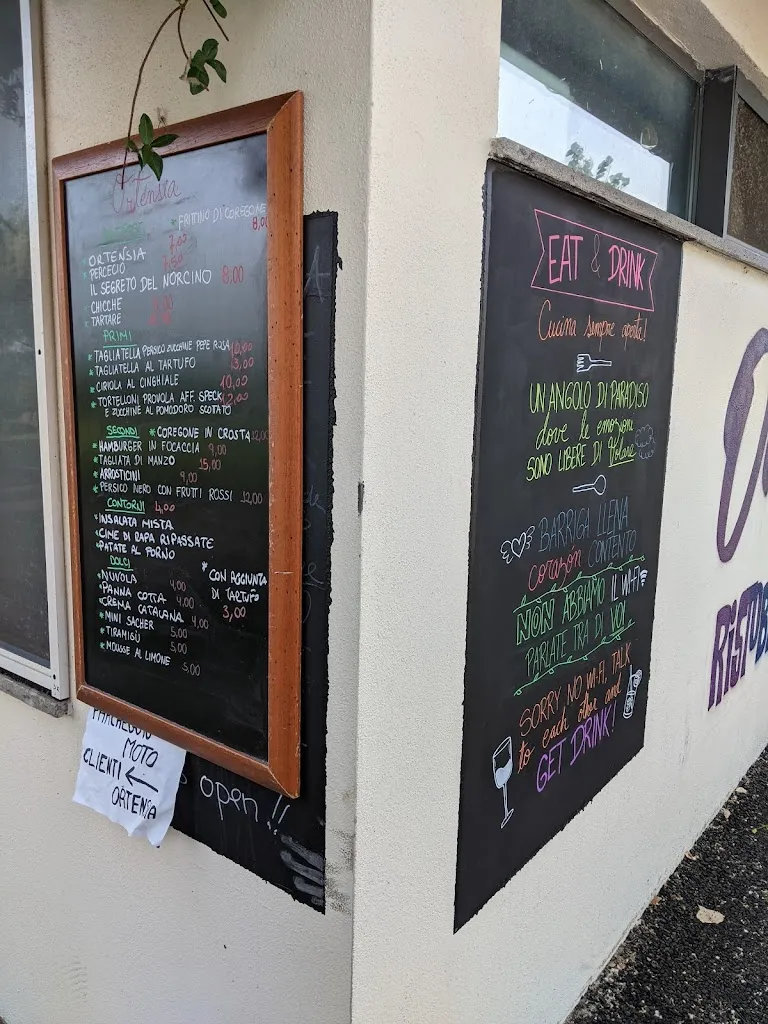 Ortensia
FRITTINO DI COREGONE 8,00
ORTENSIA 7,00
PERCECIO 7,50
IL SEGRETO DEL NORCINO 8,00
CHICCHE
TARTARE
PRIMI
TAGLIATELLA PERSICO ZUCCHINE PEPE ROSA 10,00
TAGLIATELLA AL TARTUFO 13,00
CIRIOLA AL CINGHIALE 10,00
TORTELLONI PROVOLA AFF. SPECK 12,00
E ZUCCHINE AL POMODORO SCOTTATO
SECONDI * COREGONE IN CROSTA 12,00
HAMBURGER IN FOCACCIA 9,00
TAGLIATA DI MANZO 15,00
ARROSTICINI 9,00
PERSICO NERO CON FRUTTI ROSSI 12,00
CONTORNI 4,00
INSALATA MISTA
CIME DI RAPA RIPASSATE
PATATE AL FORNO
DOLCI
NUVOLA 4,00
PANNA COTTA 4,00
CREMA CATALANA 4,00
MINI SACHER 5,00
TIRAMISÙ 5,00
MOUSSE AL LIMONE 5,00
* CON AGGIUNTA
DI TARTUFO
3,00
PARCHEGGIO
MOTO
CLIENTI ←
ORTENSIA
open!!
EAT & DRINK
Cucina sempre aperta!
UN ANGOLO DI PARADISO
dove le emozioni
SONO LIBERE DI Volare
BARRIGA LLENA
corazon CONTENTO
NON ABBIAMO IL WI-FI
PARLATE TRA DI VOI
SORRY, NO WI-FI, TALK
to each other and
GET DRINK!
RISTOB